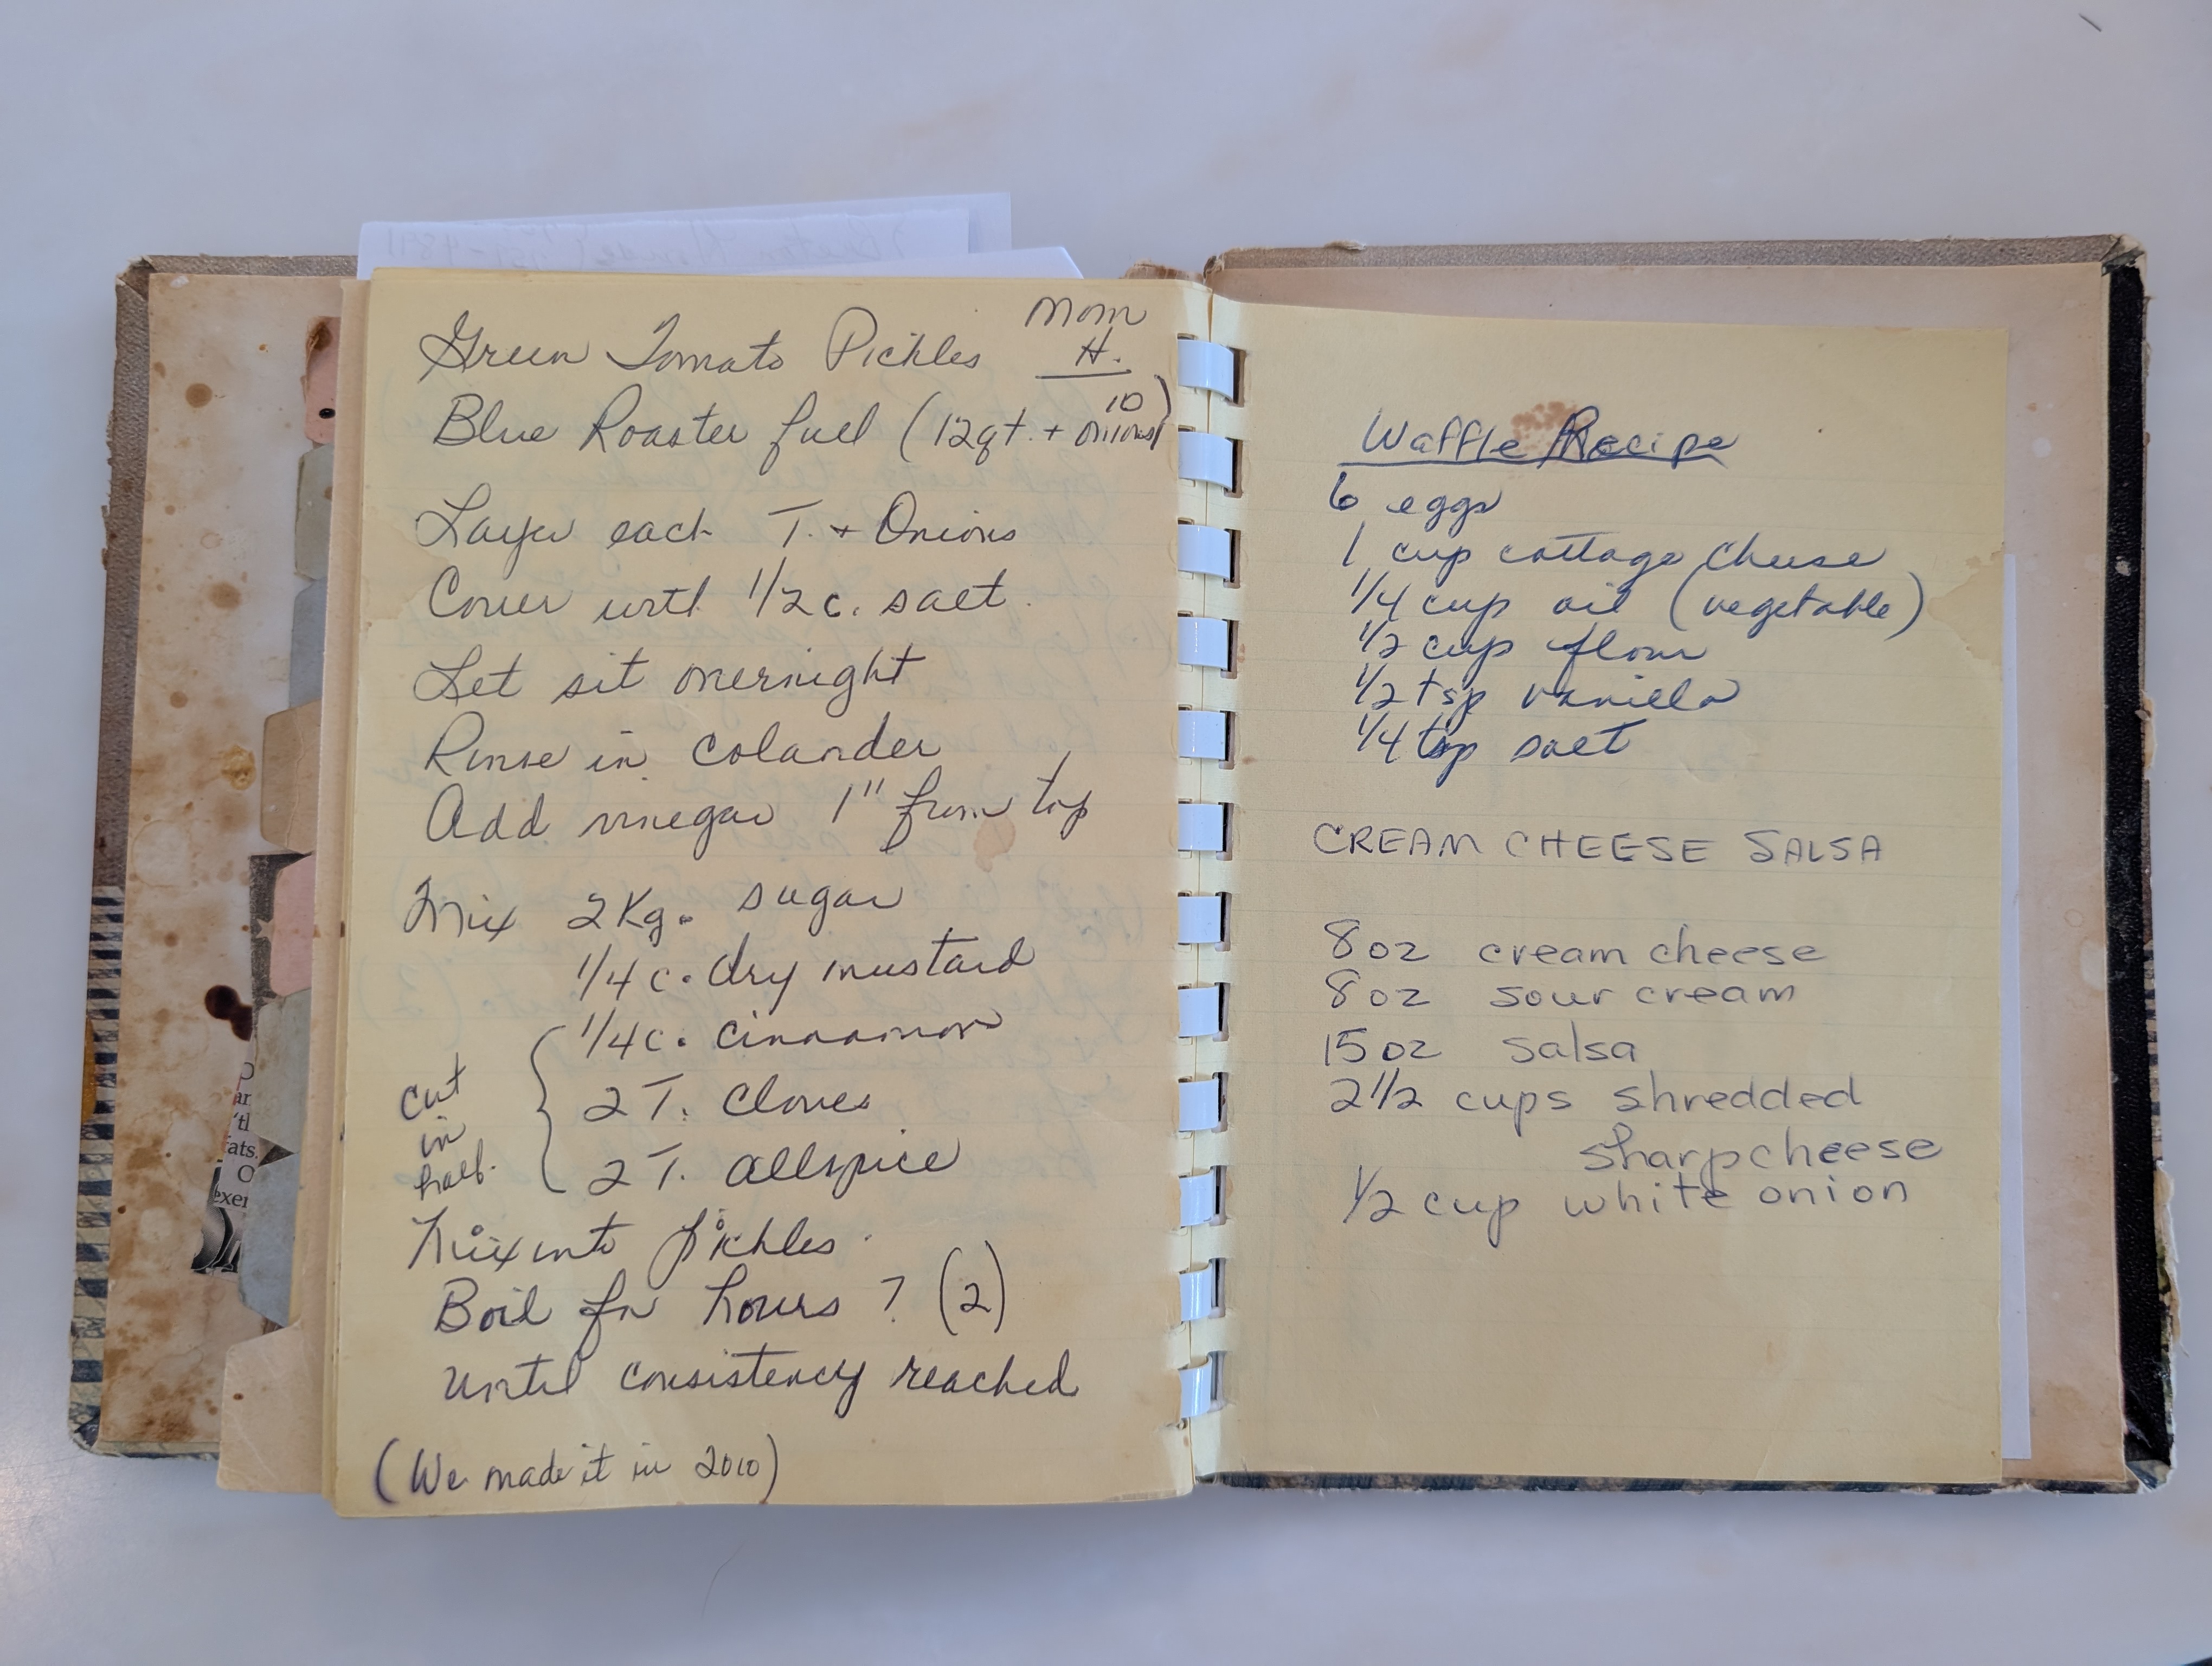 Green Tomato Pickles Mom H.
Blue Roaster full (12qt. + 10 onions)
Layer each T. + Onions
Cover with 1/2 c. salt.
Let sit overnight
Rinse in colander
Add vinegar 1" from top
Mix 2 Kg. sugar
1/4 c. dry mustard
1/4 c. cinnamon
2 T. cloves
2 T. allspice
cut
in
half.
Mix into pickles.
Boil for hours ? (2)
until consistency reached
(We made it in 2010)
Waffle Recipe
6 eggs
1 cup cottage cheese
1/4 cup oil (vegetable)
1/2 cup flour
1/2 tsp vanilla
1/4 tsp salt
CREAM CHEESE SALSA
8 oz cream cheese
8 oz sour cream
15 oz salsa
2 1/2 cups shredded
sharp cheese
1/2 cup white onion